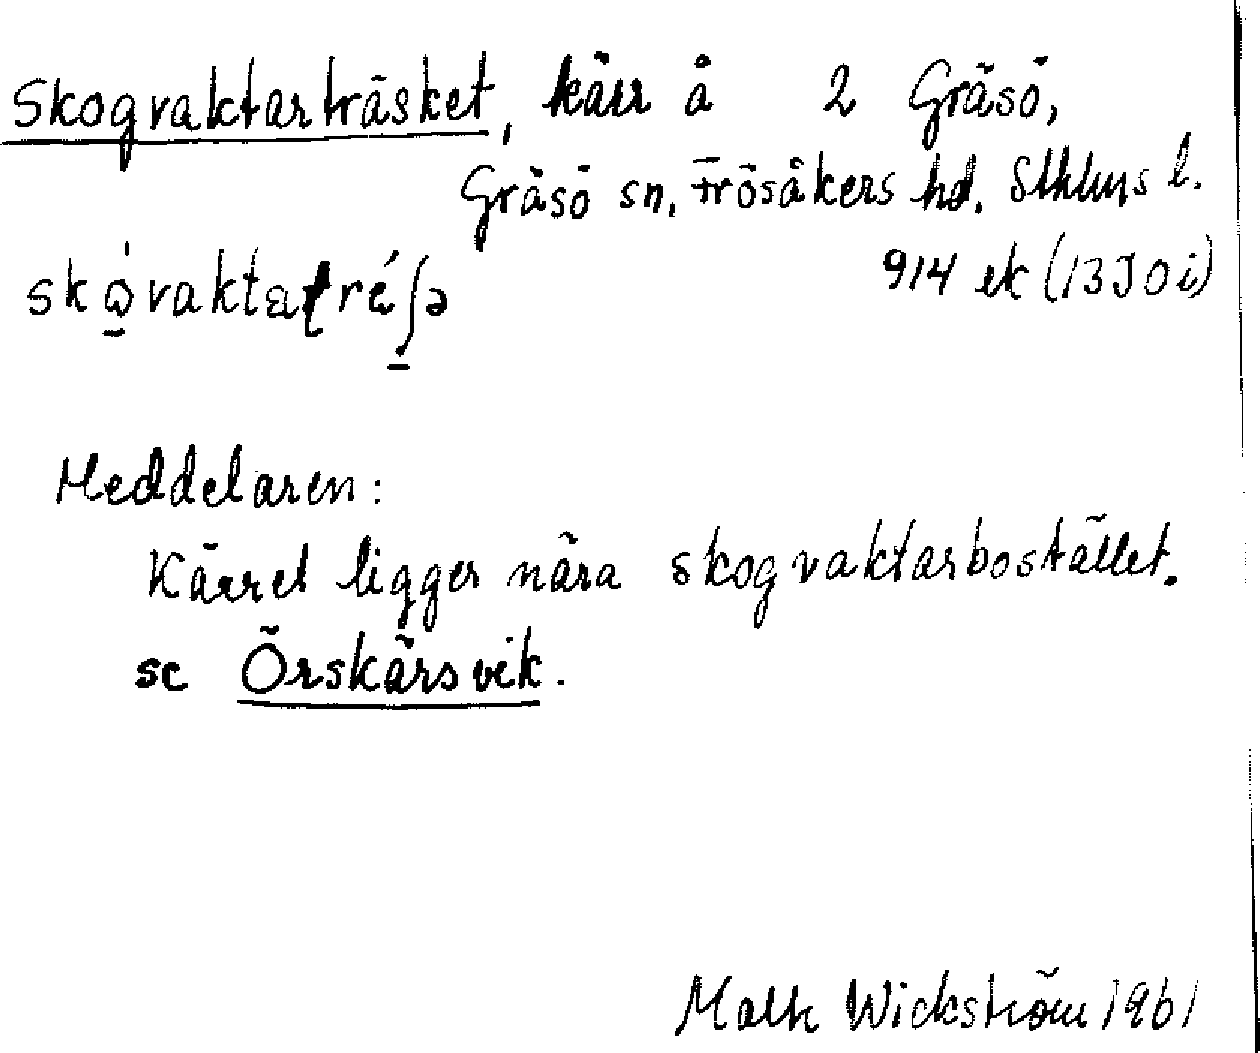 Skogvaktarträsket, kärr å 2 Gräsö,
Gräsö sn, Frösåkers hd. Sthlms l.
914 ek (13J0i)
Meddelaren:
Kärret ligger nära skogvaktarbostället.
se Örskärsvik.
Wickström 1961